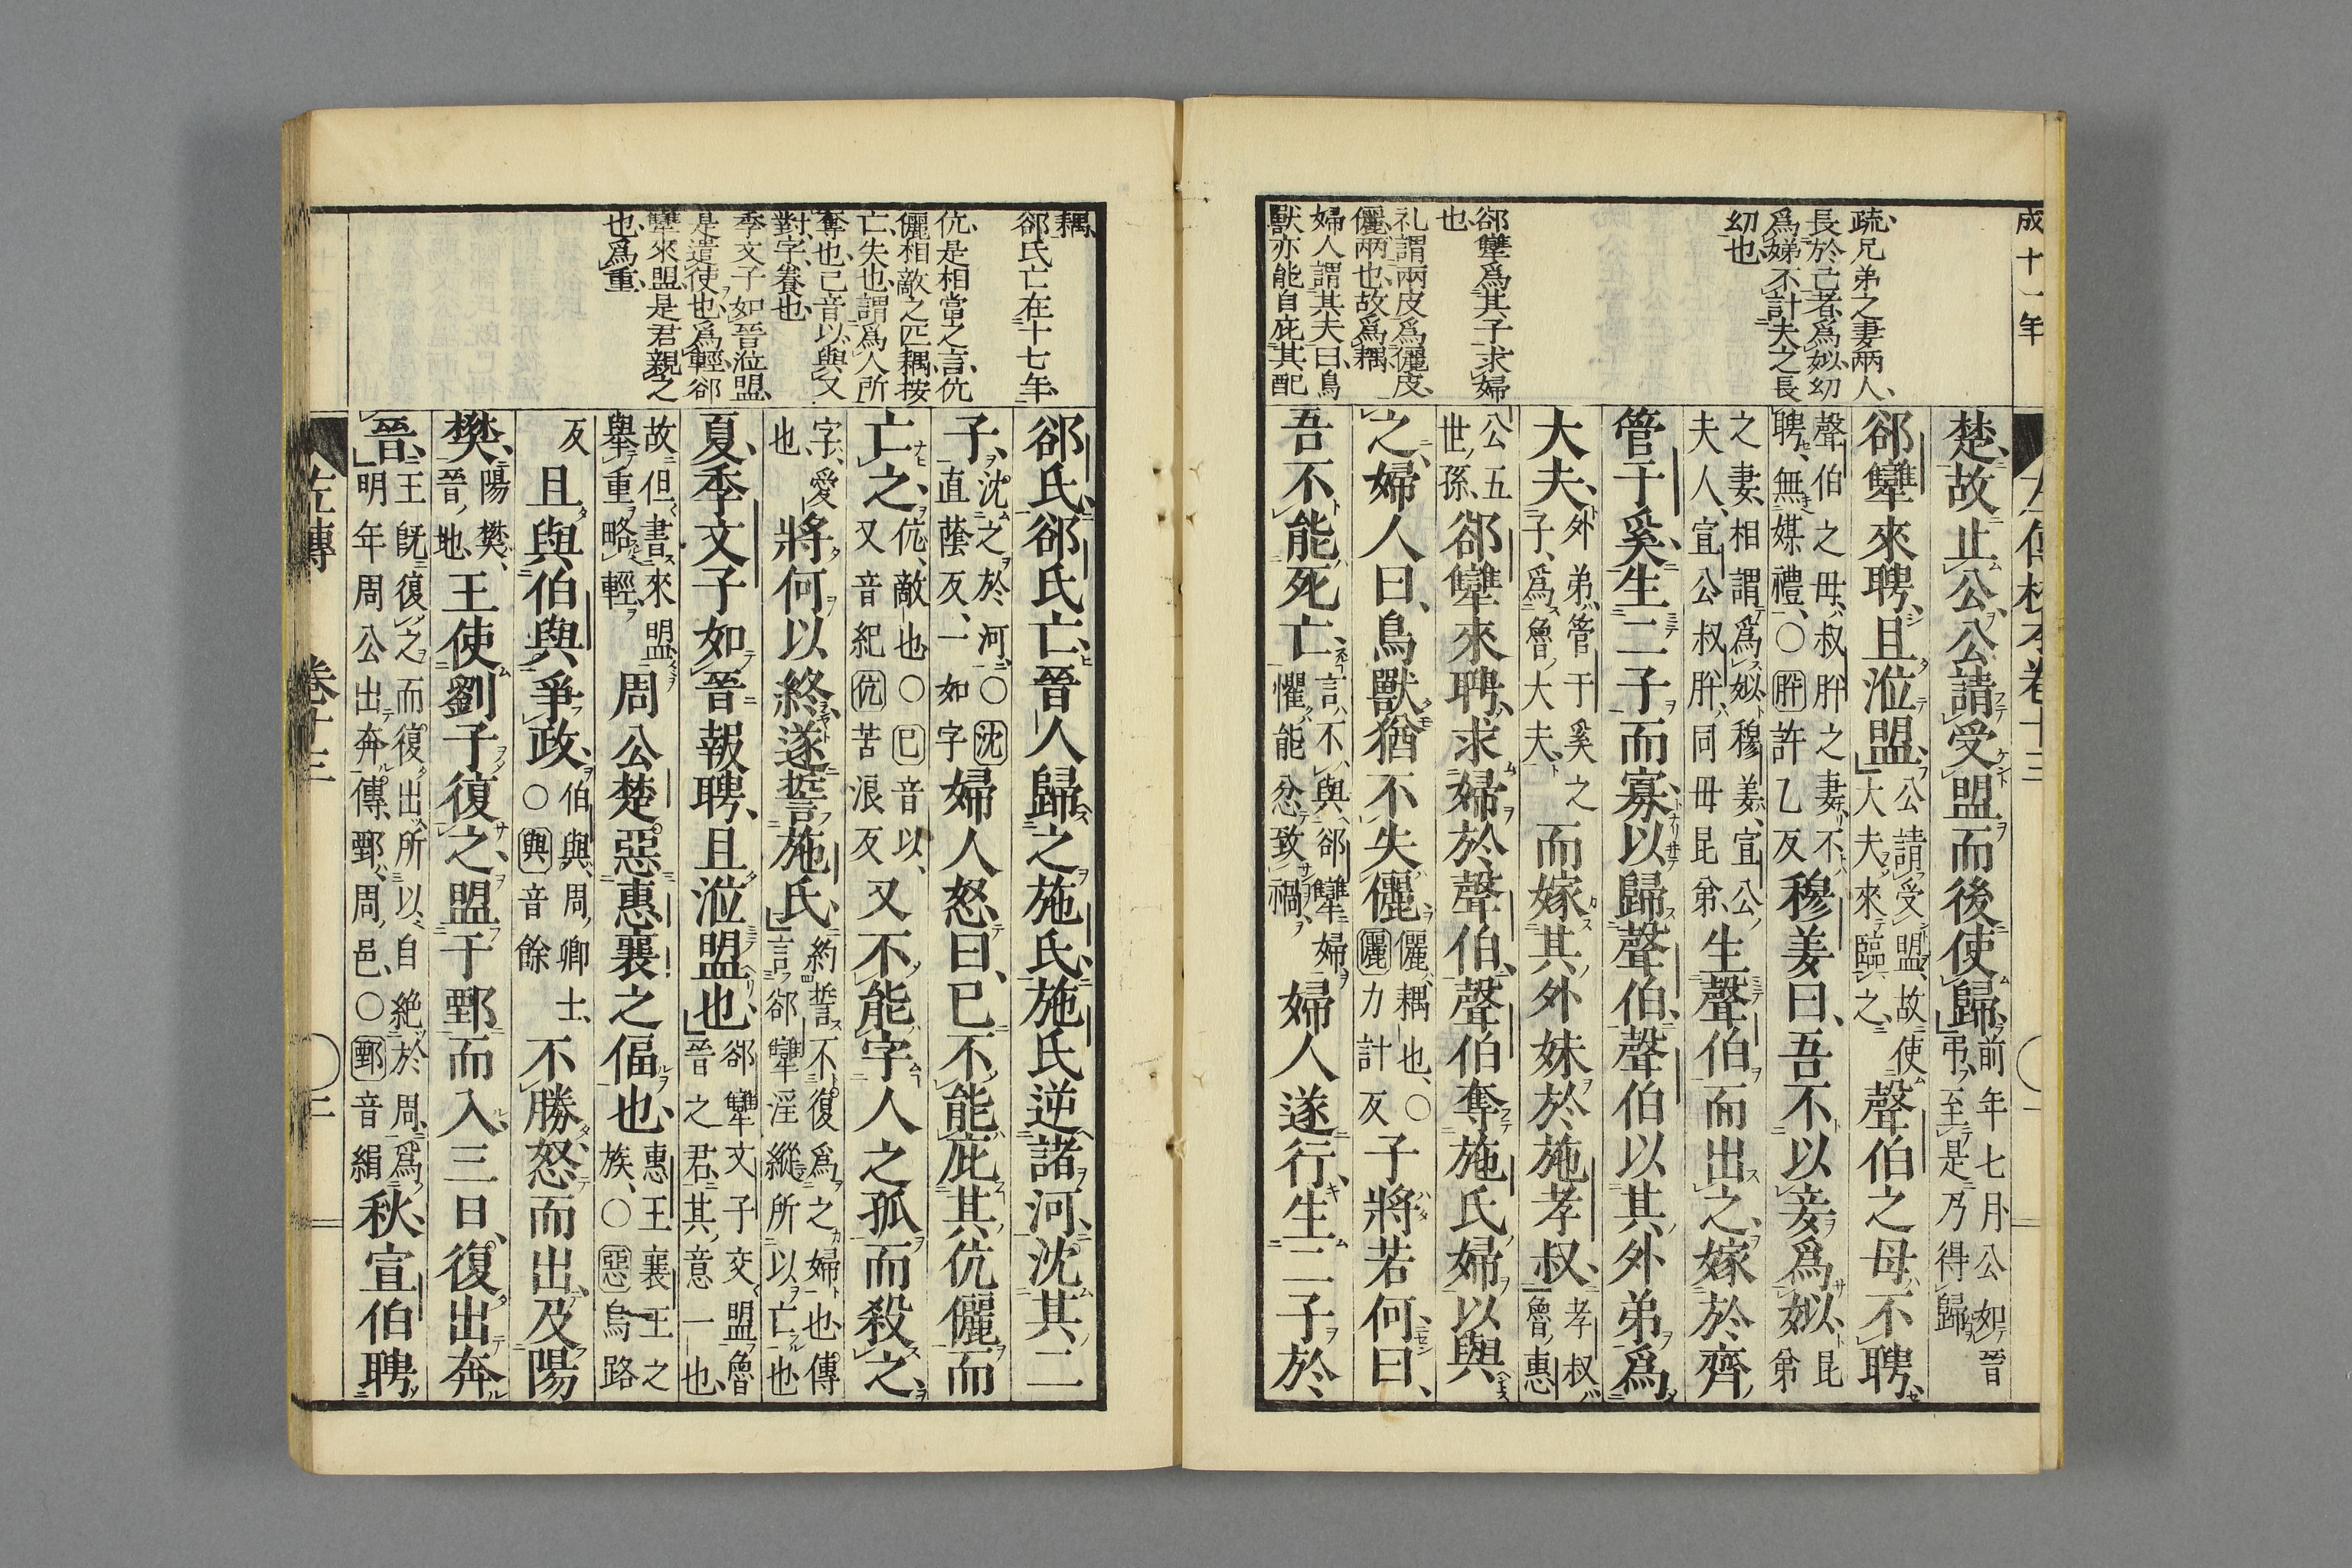 成十一年
疏兄弟之妻兩人
長於己者爲姒幼
爲娣不計夫之長
幼也
郤犨爲其子求婦
也
礼謂兩皮爲儷皮
儷兩也故爲耦
婦人謂其夫曰鳥
獸亦能自庇其配
楚故止公公請受盟而後使歸前年七月公如晉弔至是乃得歸
郤犨來聘且涖盟公請受盟故使大夫來臨之聲伯之母不聘
聲伯之母叔肸之妻不聘無媒禮○肸許乙反穆姜曰吾不以妾爲姒昆弟
之妻相謂爲姒穆姜宣公夫人宣公叔肸同母昆弟生聲伯而出之嫁於齊
管于奚生二子而寡以歸聲伯聲伯以其外弟爲
大夫外弟管于奚之子爲魯大夫而嫁其外妹於施孝叔孝叔魯惠
公五世孫郤犨來聘求婦於聲伯聲伯奪施氏婦以與
之婦人曰鳥獸猶不失儷儷耦也○儷力計反子將若何曰
吾不能死亡言不與郤犨婦懼能忿致禍婦人遂行生二子於
耦
郤氏亡在十七年
伉是相當之言伉
儷相敵之匹耦按
亡失也謂爲人所
奪也己音以與又
對字養也
季文子如晉涖盟
是遣使也爲輕郤
犨來盟是君親之
也爲重
郤氏郤氏亡晉人歸之施氏施氏逆諸河沈其二
子沈之於河○沈直蔭反一如字婦人怒曰已不能庇其伉儷而
亡之伉敵也○已音以又音紀伉苦浪反又不能字人之孤而殺之
字愛也將何以終遂誓施氏約誓不復爲之婦也傳言郤犨淫縱所以亡也
夏季文子如晉報聘且涖盟也郤犨文子交盟魯晉之君其意一也
故但書來盟舉重略輕周公楚惡惠襄之偪也惠王襄王之族○惡烏路
反且與伯與爭政伯與周卿士○與音餘不勝怒而出及陽
樊陽樊晉地王使劉子復之盟于鄄而入三日復出奔
晉王旣復之而復出所以自絕於周爲明年周公出奔傳鄄周邑○鄄音絹秋宣伯聘
左傳 卷十三 二